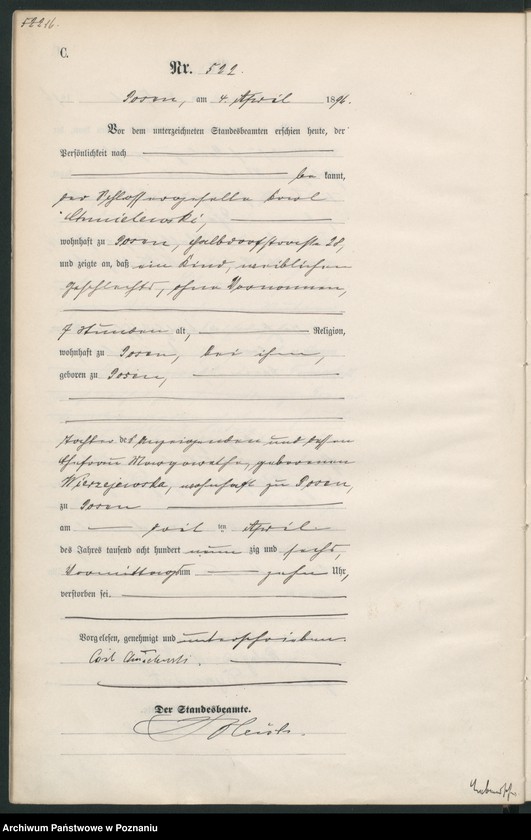 522 16.
C.
Nr. 522.
Posen, am 4. April 1896.
Vor dem unterzeichneten Standesbeamten erschien heute, der
Persönlichkeit nach
be kannt,
der Schlossergeselle Carl
Chmielewski,
wohnhaft zu Posen, Halbdorfstrasse 28,
und zeigte an, daß ein Kind, weiblichen
Geschlechts, ohne Vornamen,
7 Stunden alt, Religion,
wohnhaft zu Posen, bei ihm,
geboren zu Posen,
Tochter des Anzeigenden und dessen
Ehefrau Margarethe, geborenen
Wierzejewska, wohnhaft zu Posen,
zu Posen
am drei ten April
des Jahres tausend acht hundert neun zig und sechs,
Vormittags um zehn Uhr,
verstorben sei.
Vorgelesen, genehmigt und unterschrieben.
Carl Chmielewski.
Der Standesbeamte.
Archiwum Państwowe w Poznaniu